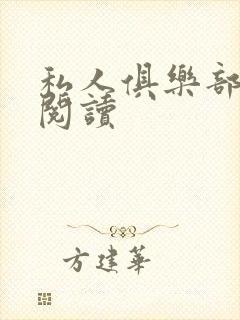 私人俱樂部
閱讀
方建華